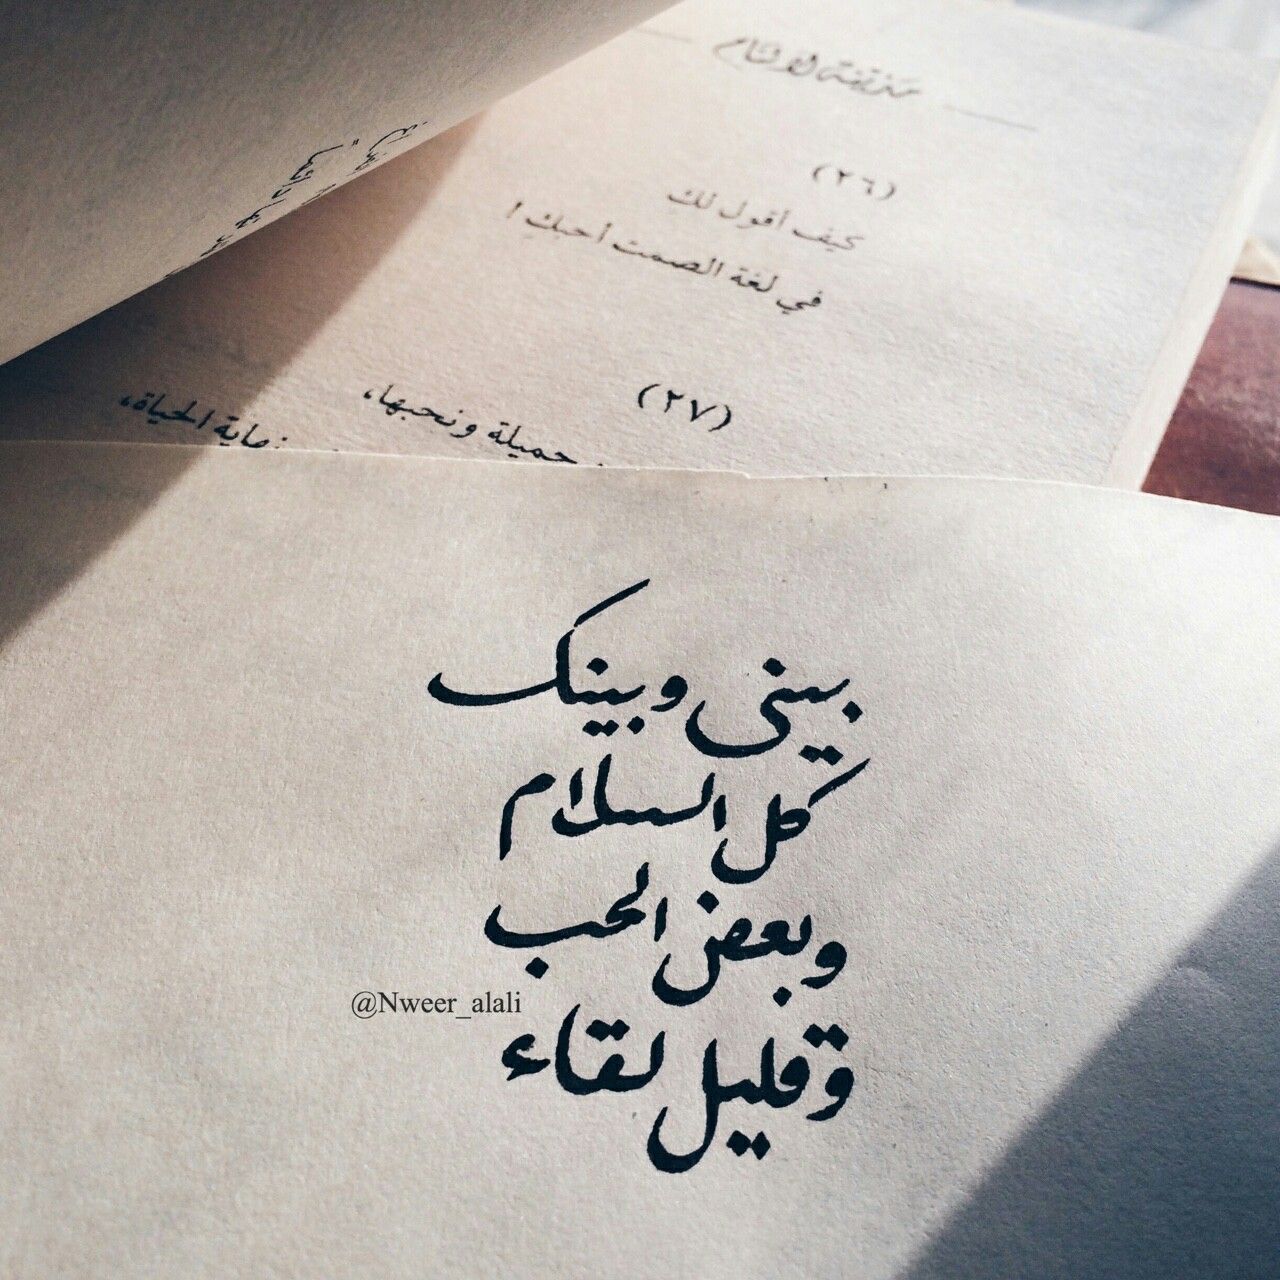 (٢٦)
كيف أقول لك
في لغة الصمت أحبك !
(٢٧)
جميلة ونحبها،
الحياة،
بيني وبينك
كل السلام
وبعض الحب
@Nweer_alali
وقليل لقاء